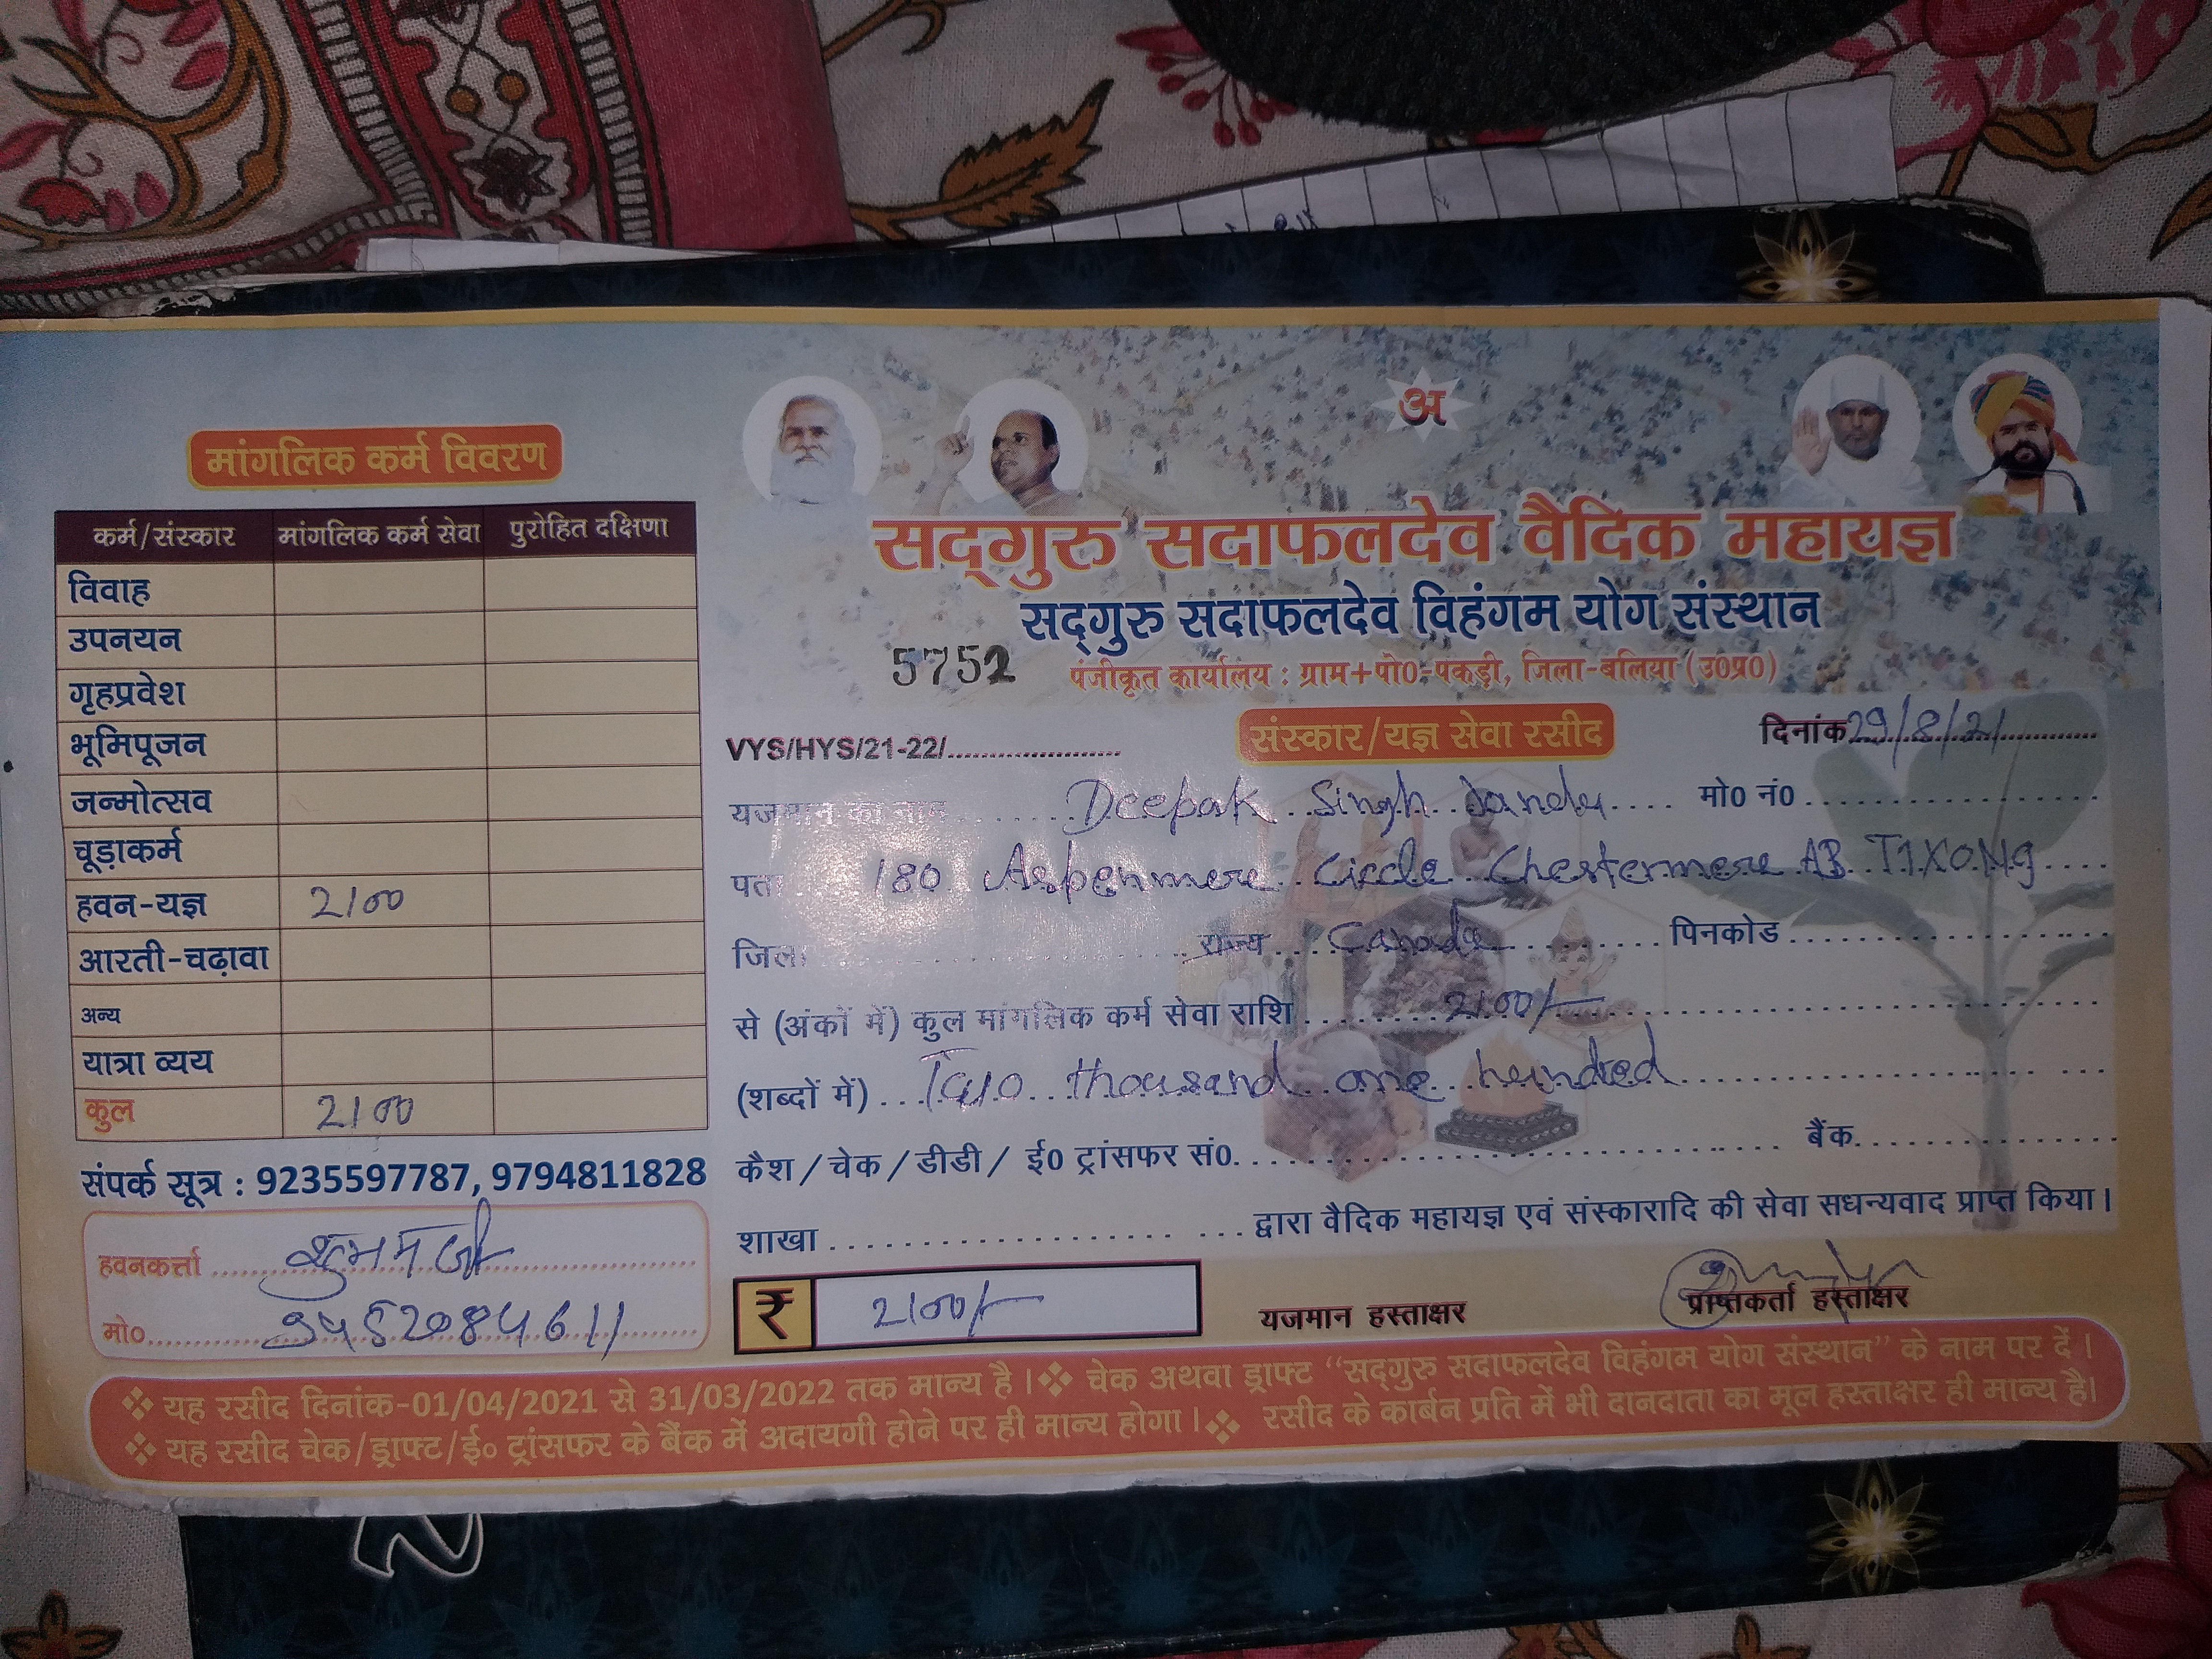 मांगलिक कर्म विवरण
कर्म/संस्कार मांगलिक कर्म सेवा पुरोहित दक्षिणा
विवाह
उपनयन
गृहप्रवेश
भूमिपूजन
जन्मोत्सव
चूड़ाकर्म
हवन-यज्ञ 2100
आरती-चढ़ावा
अन्य
यात्रा व्यय
कुल 2100
संपर्क सूत्र : 9235597787, 9794811828
हवनकर्त्ता शुभम जी
मो0 9452084611
अ
सद्गुरु सदाफलदेव वैदिक महायज्ञ
सद्गुरु सदाफलदेव विहंगम योग संस्थान
5752 पंजीकृत कार्यालय : ग्राम+पो0-पकड़ी, जिला-बलिया (उ0प्र0)
VYS/HYS/21-22/ संस्कार/यज्ञ सेवा रसीद दिनांक 29/8/21
यजमान का नाम Deepak Singh मो0 नं0
पता 180 Aspenmere Circle Chestermere AB T1X0M9
जिला राज्य Canada पिनकोड
से (अंकों में) कुल मांगलिक कर्म सेवा राशि 2100/-
(शब्दों में) Two thousand one hundred
कैश/चेक/डीडी/ ई0 ट्रांसफर सं0 बैंक
शाखा द्वारा वैदिक महायज्ञ एवं संस्कारादि की सेवा सधन्यवाद प्राप्त किया।
₹ 2100/- यजमान हस्ताक्षर प्राप्तकर्ता हस्ताक्षर
❖ यह रसीद दिनांक-01/04/2021 से 31/03/2022 तक मान्य है। ❖ चेक अथवा ड्राफ्ट “सद्गुरु सदाफलदेव विहंगम योग संस्थान” के नाम पर दें।
❖ यह रसीद चेक/ड्राफ्ट/ई० ट्रांसफर के बैंक में अदायगी होने पर ही मान्य होगा। ❖ रसीद के कार्बन प्रति में भी दानदाता का मूल हस्ताक्षर ही मान्य है।